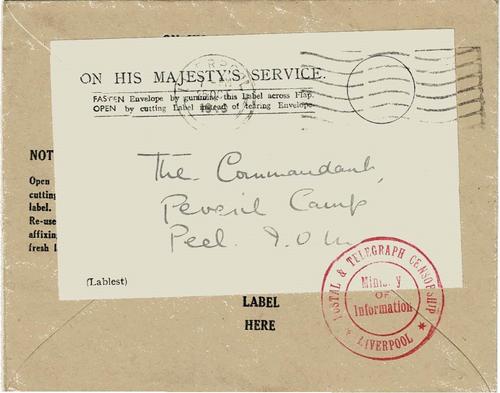 LIVERPOOL
ON HIS MAJESTY'S SERVICE.
FASTEN Envelope by gumming this Label across Flap.
OPEN by cutting Label instead of tearing Envelope.
NOT
Open
cutting
label.
Re-use
affixing
fresh l
The Commandant,
Peveril Camp
Peel. I.O.M.
(Lablest)
LABEL
HERE
POSTAL & TELEGRAPH CENSORSHIP
Ministry
OF
Information
* LIVERPOOL *